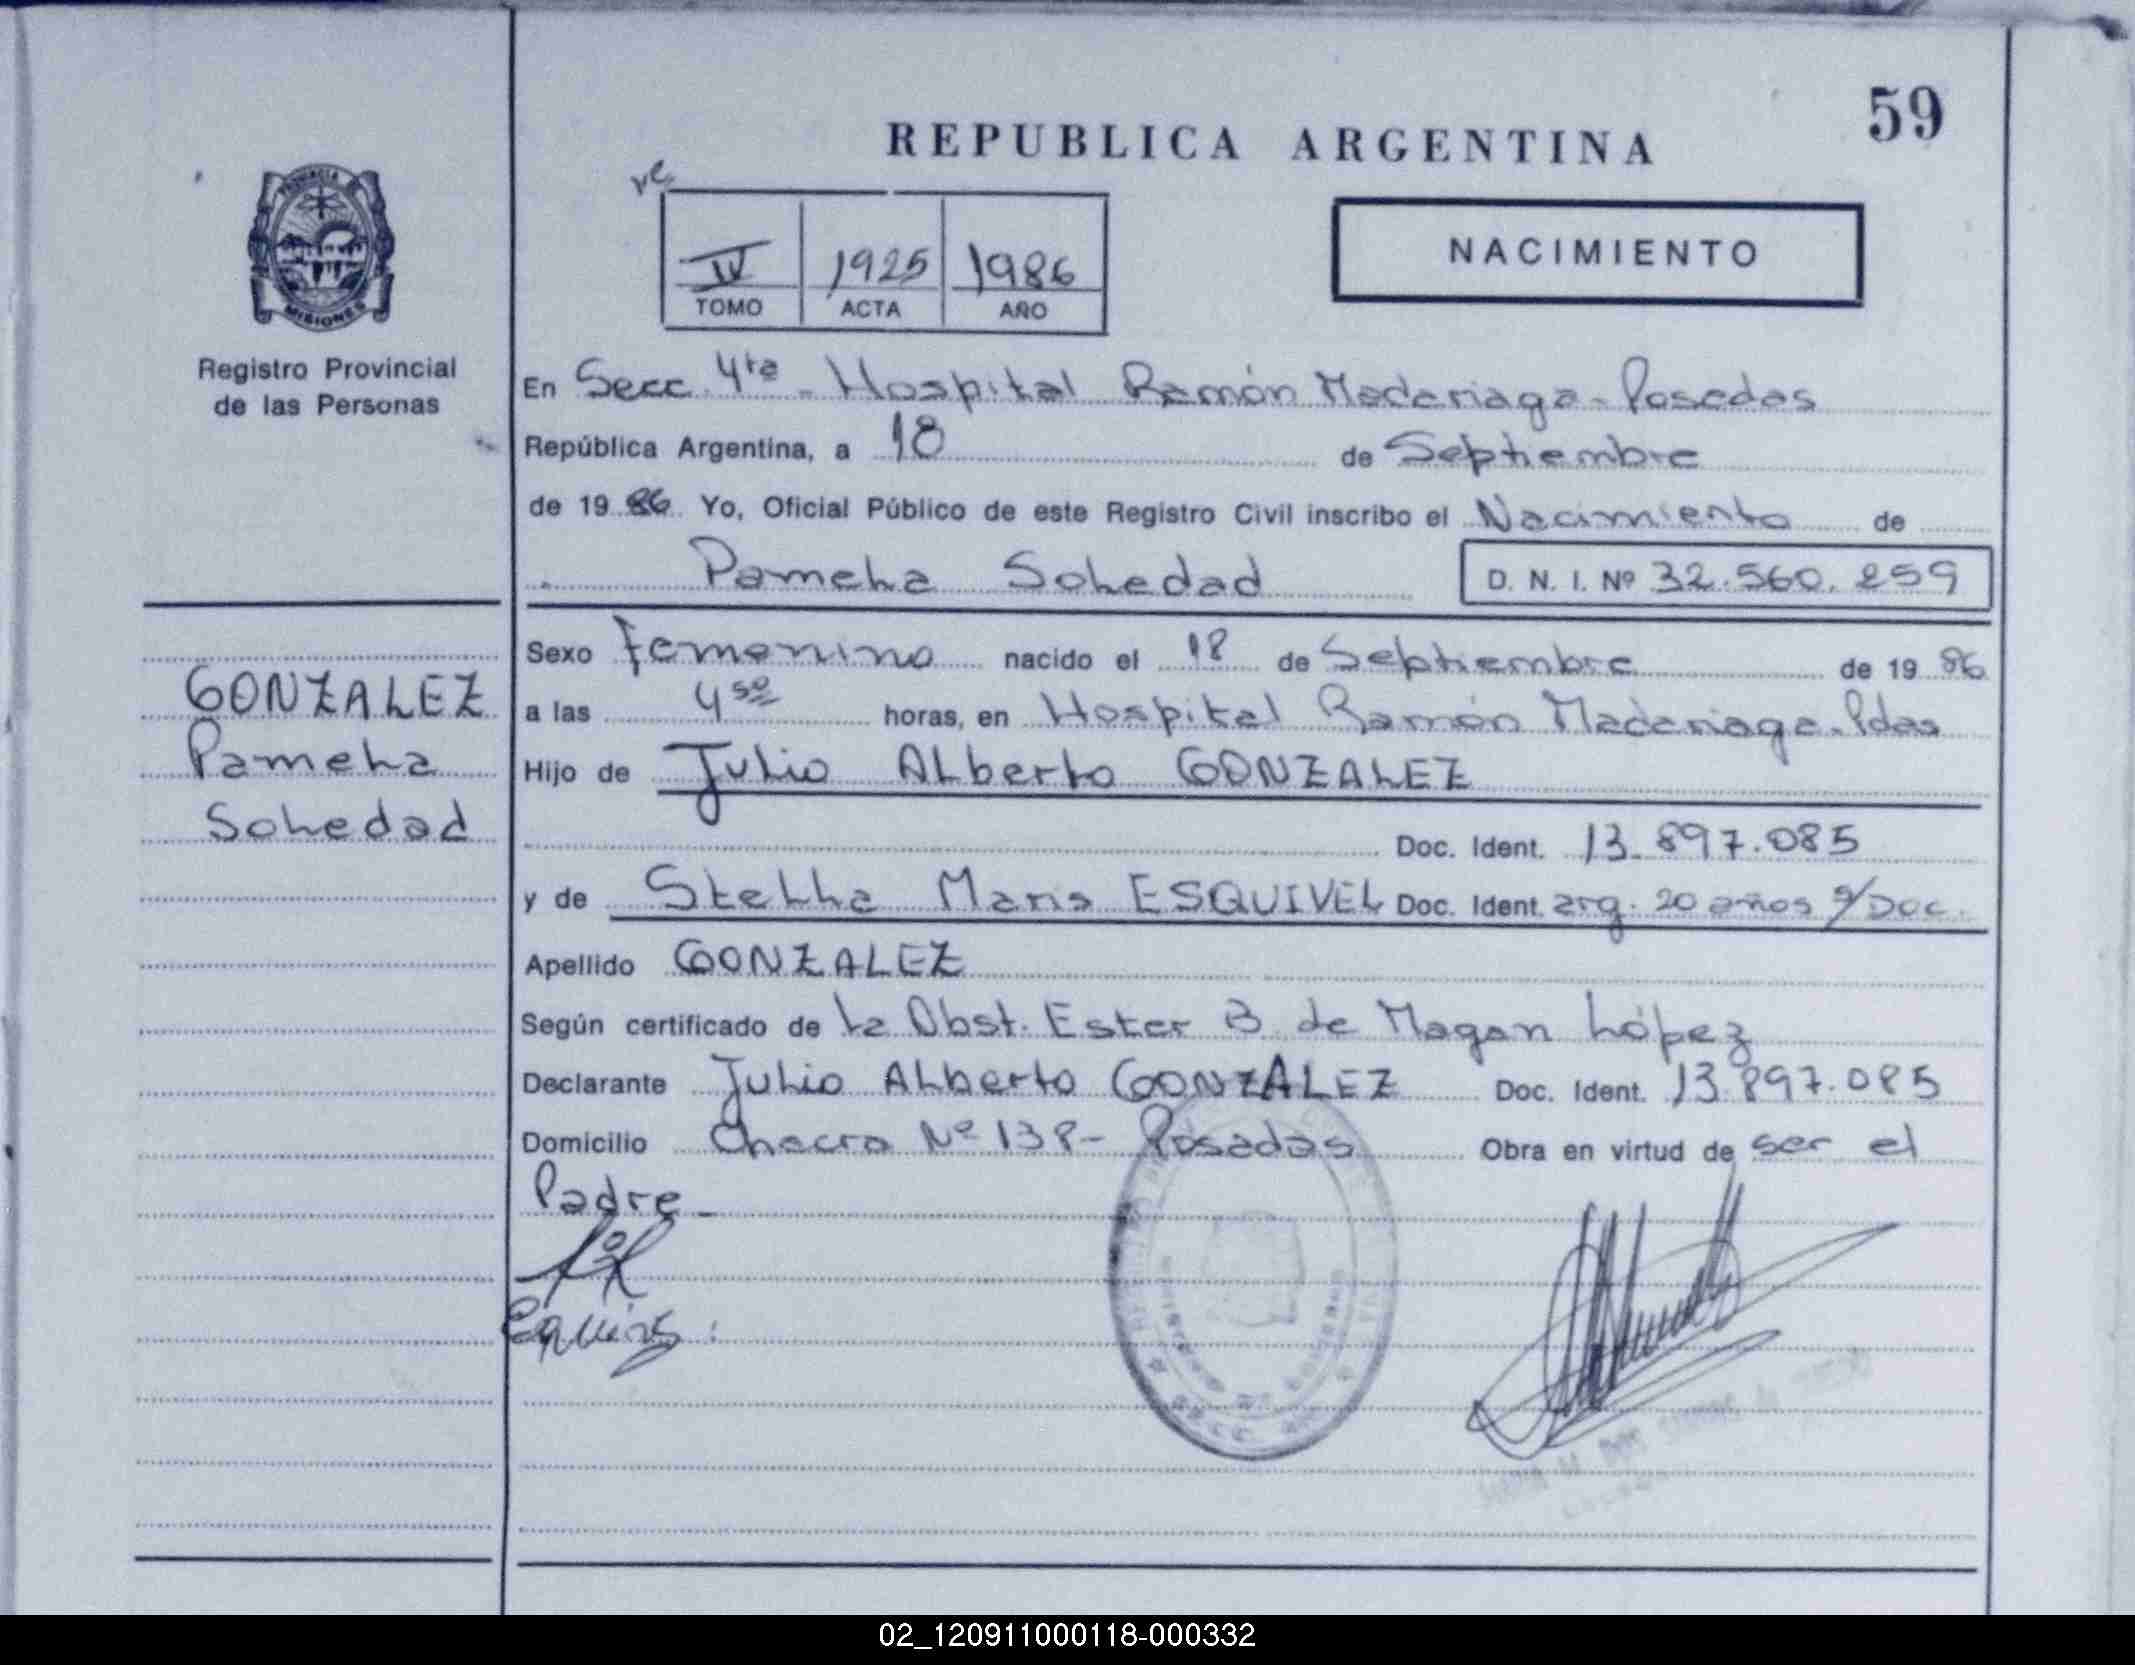 59
REPUBLICA ARGENTINA
NACIMIENTO
PROVINCIA DE
MISIONES
Registro Provincial
de las Personas
IV 1925 1986
TOMO ACTA AÑO
En Secc. 4ta - Hospital Ramón Madariaga - Posadas
República Argentina, a 18 de Septiembre
de 19 86 Yo, Oficial Público de este Registro Civil inscribo el Nacimiento de
Pamela Soledad D. N. I. Nº 32.560.259
GONZALEZ
Pamela
Soledad
Sexo Femenino nacido el 18 de Septiembre de 19 86
a las 4 50 horas, en Hospital Ramón Madariaga - Pdas
Hijo de Julio Alberto GONZALEZ
Doc. Ident. 13.897.085
y de Stella Maris ESQUIVEL Doc. Ident. arg. 20 años s/Doc.
Apellido GONZALEZ
Según certificado de la Obst. Ester B de Magan López
Declarante Julio Alberto GONZALEZ Doc. Ident. 13.897.085
Domicilio Chacra Nº 138 - Posadas Obra en virtud de ser el
Padre -
02_120911000118-000332